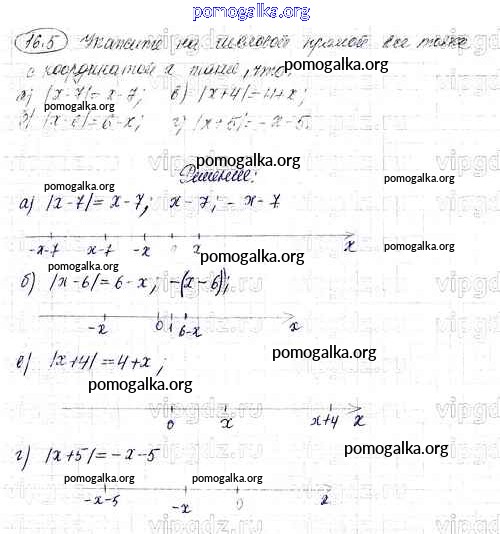 pomogalka.org
16.5 Укажите на числовой прямой все точки
с координатой x такие, что:
pomogalka.org
а) |x-7|=x-7; в) |x+4|=4+x;
б) |x-6|=6-x; г) |x+5|=-x-5.
pomogalka.org
pomogalka.org
Решение:
pomogalka.org
а) |x-7|=x-7; x-7; -x-7
pomogalka.org
-x-7 x-7 -x 0 x x
pomogalka.org
pomogalka.org
б) |x-6|=6-x; -(x-6);
pomogalka.org
-x 0 1 6-x x
pomogalka.org
в) |x+4|=4+x;
pomogalka.org
0 x x+4 x
pomogalka.org
г) |x+5|=-x-5
pomogalka.org pomogalka.org pomogalka.org
-x-5 -x 0 x